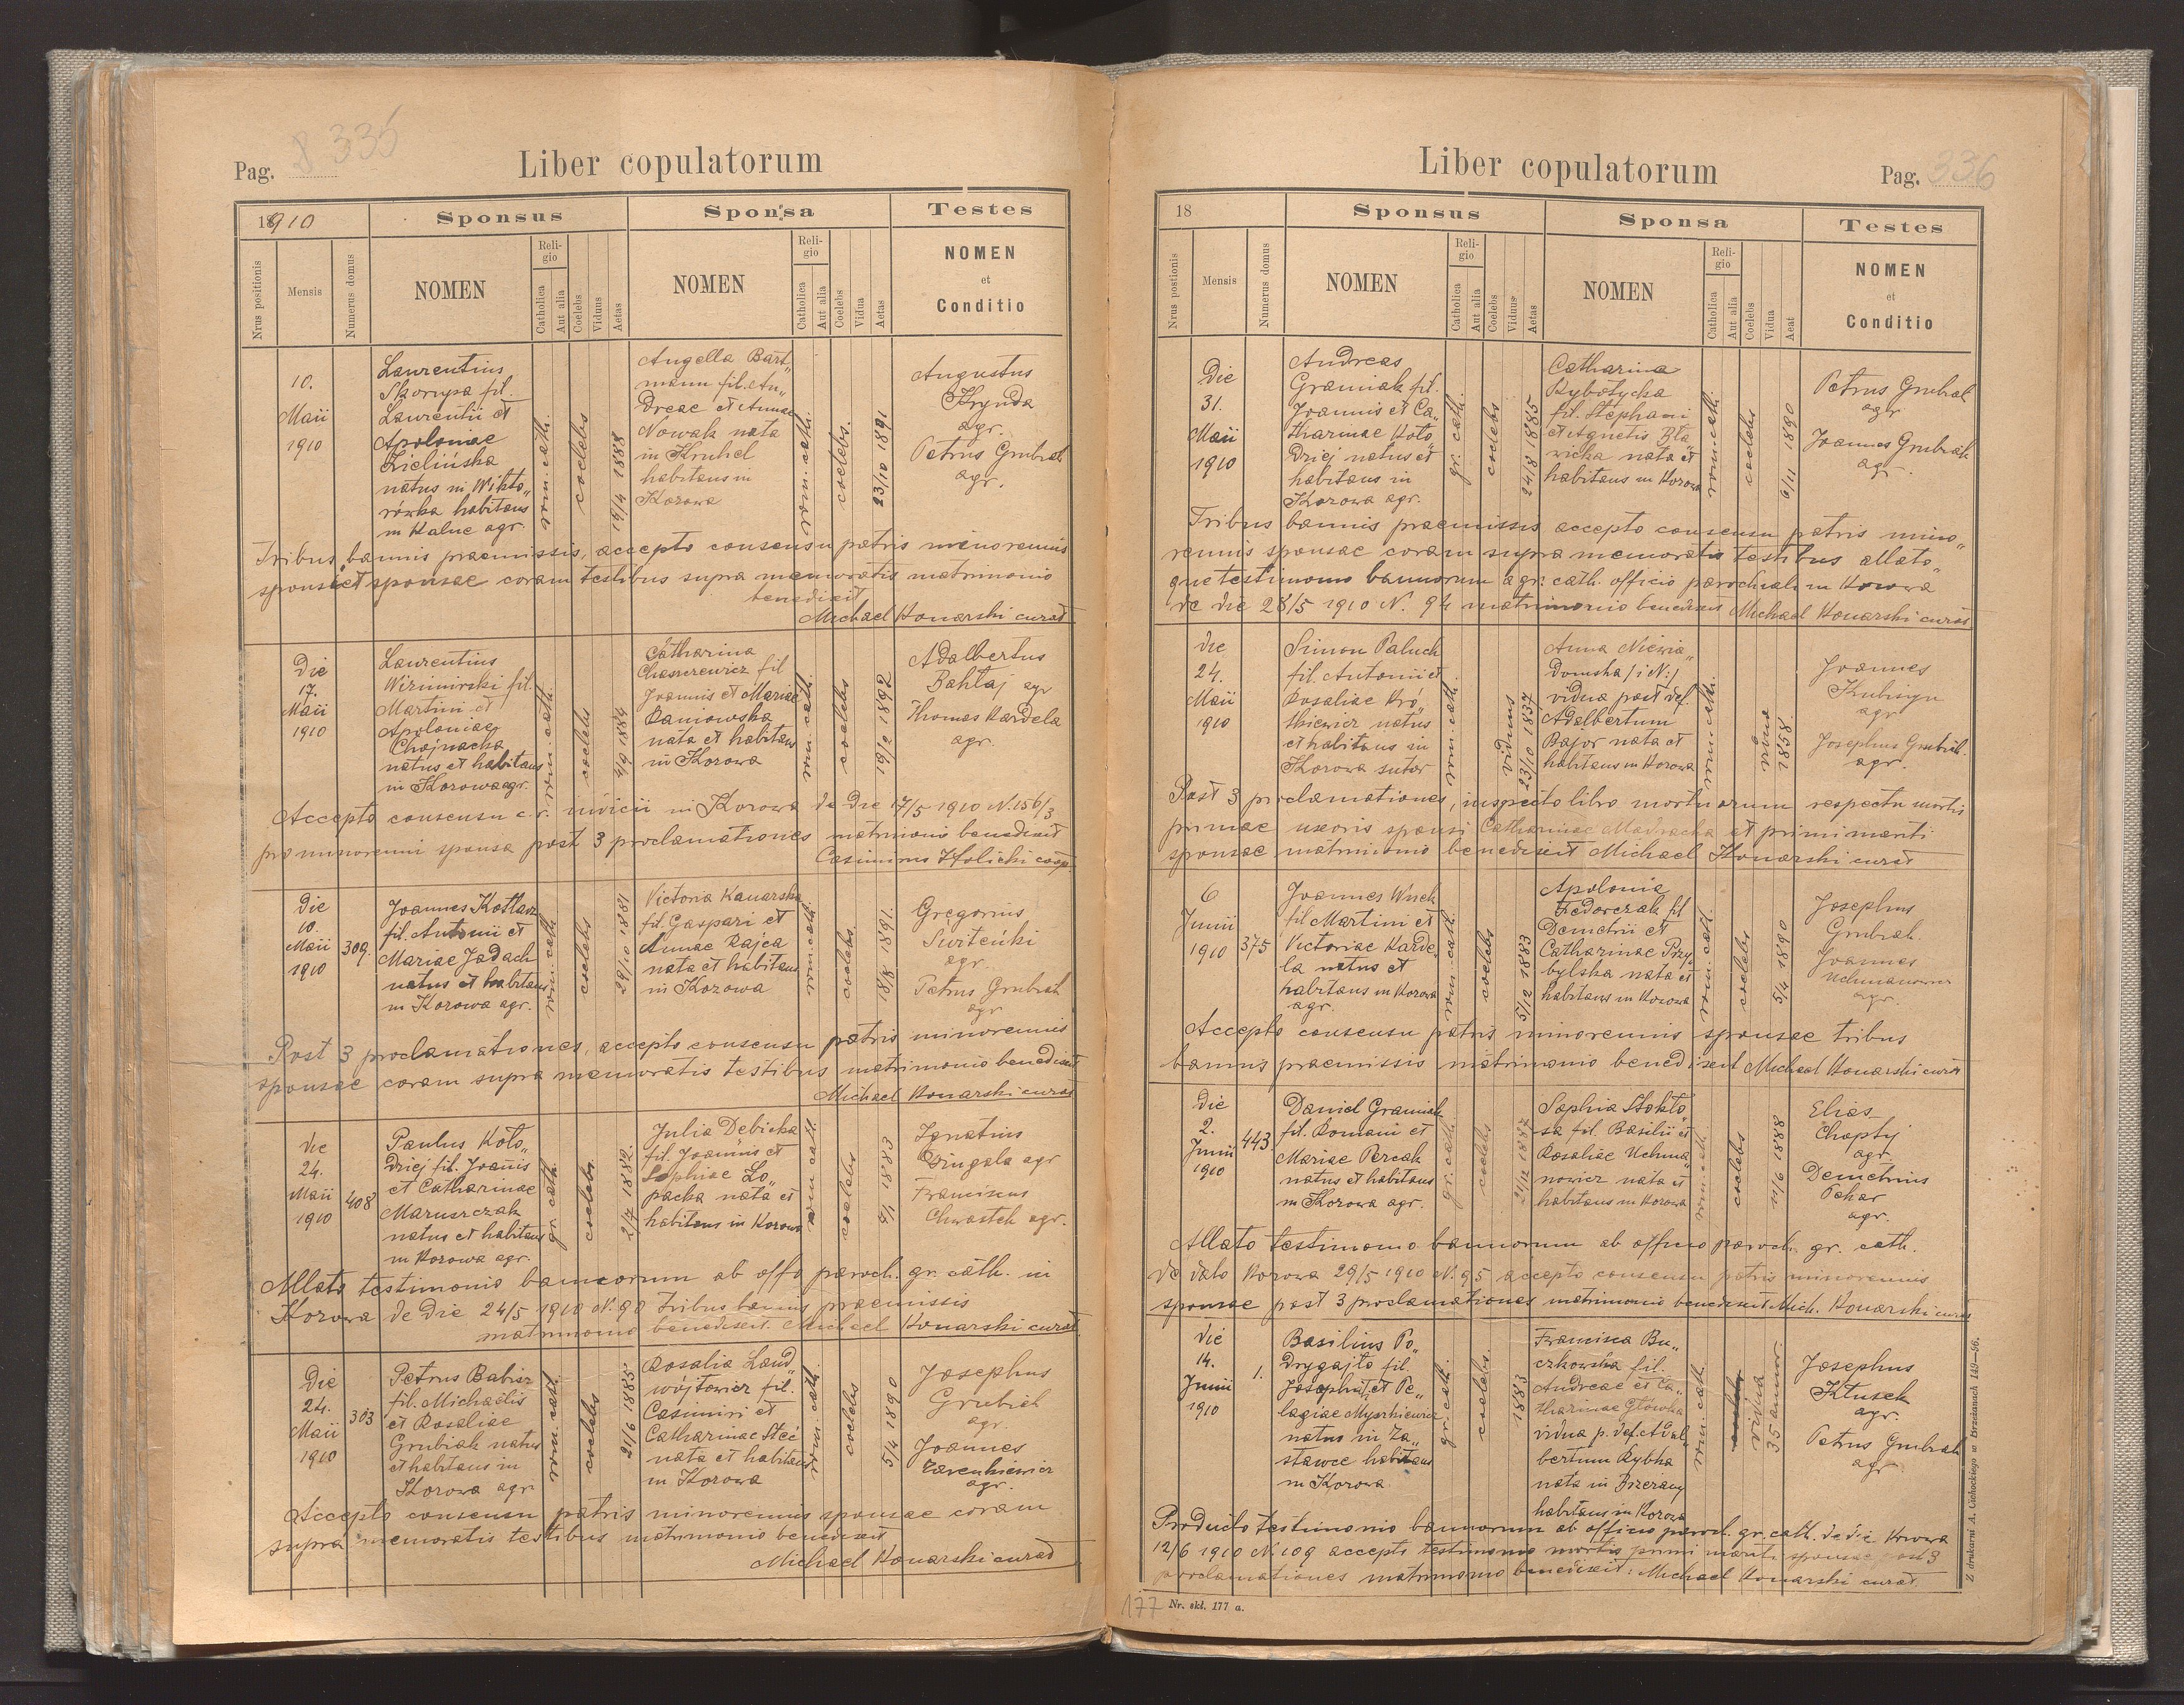 Pag. 335
Liber copulatorum
1910
Sponsus
Sponsa
Testes
Nrus positionis
Mensis
Numerus domus
NOMEN
Religio
Catholica
Aut alia
Coelebs
Viduus
Aetas
NOMEN
Religio
Catholica
Aut alia
Coelebs
Vidua
Aetas
NOMEN
et
Conditio
10.
Maii
1910
Laurentius
Skorupa fil.
Laurentii et
Apoloniae
Zielińska
natus in Wikto„
rówka habitans
in Kalne agr.
rom. cath.
coelebs
1888
Angella Bart„
mann fil. An„
dreae et Annae
Nowak nata
in Kruhel
habitans in
Kozowa
rom. cath.
coelebs.
23/10 1891
Augustus
Krynda
agr.
Petrus Grubiak
agr.
Tribus bannis praemissis, accepto consensu patris minorennis
sponsi et sponsae coram testibus supra memoratis matrimonio
benedixit
Michael Konarski curat
Die
17.
Maii
1910
Laurentius
fil.
Martini et
Apoloniae
Chojnacka
natus et habitans
in Kozowa agr.
rom. cath.
coelebs
1884
Catharina
fil
Joannis et Mariae
Baniowska
nata et habitans
in Kozowa
rom. cath.
coelebs
19/2 1892
Adalbertus
Bahtaj agr
Thomas Kardela
agr.
Accepto consensu c. r. iudicii in Kozowa de die 17/5 1910 N. 156/3
pro minorenni sponsa post 3 proclamationes matrimonio benedixit
Casimirus coop.
Die
10.
Maii
1910
309.
Joannes Kotlarz
fil. Antonii et
Mariae Jadach
natus et habitans
in Kozowa agr.
rom. cath
coelebs
29/10 1881
Victoria Kanarska
fil. Gaspari et
Annae Rajca
nata et habitans
in Kozowa
rom. cath.
coelebs.
18/8 1891.
Gregorius
agr.
Petrus Grubiak
agr
Post 3 proclamationes, accepto consensu patris minorennis
sponsae coram supra memoratis testibus matrimonio benedixit
Michael Konarski curat
Die
24.
Maii
1910
408
Paulus Koło„
dziej fil. Joannis
et Catharinae
Maruszczak
natus et habitans
in Kozowa agr.
gr. cath.
coelebs.
2/7 1882.
Julia Debicka
fil. Joannis et
Sophiae Ło„
packa nata et
habitans in Kozowa
rom cath.
coelebs
1883
Ignatius
Gringala agr
Franciscus
Chwastek agr.
Allato testimonio bannorum ab offo paroch. gr. cath. in
Kozowa de die 24/5 1910 N. 90 tribus bannis praemissis
matrimonio benedixit. Michael Konarski curat
Die
24.
Maii
1910
303
Petrus Babisz
fil. Michaelis
et Rosaliae
Grubiak natus
et habitans in
Kozowa agr.
rom. cath.
coelebs
21/6 1885
Rosalia Land„
wójtowicz fil.
Casimiri et
Catharinae Steć
nata et habitans
in Kozowa
rom. cath.
coelebs
5/4 1890
Josephus
Grubiak
agr.
Joannes
agr.
Accepto consensu patris minorennis sponsae coram
supra memoratis testibus matrimonio benedixit
Michael Konarski curat
Liber copulatorum
Pag. 336
18
Sponsus
Sponsa
Testes
Nrus postionis
Mensis
Numerus domus
NOMEN
Religio
Catholica
Aut alia
Coelebs
Viduus
Aetas
NOMEN
Religio
Catholica
Aut alia
Coelebs
Vidua
Aeat
NOMEN
et
Conditio
Die
31.
Maii
1910
Andreas
Graniak fil.
Joannis et Ca„
tharinae Koło„
dziej natus et
habitans in
Kozowa agr.
gr. cath.
coelebs
24/8 1885
Catharina
Rybotycka
fil. Stephani
et Agnetis Bła„
wicka nata et
habitans in Kozowa
rom. cath.
coelebs
6/11 1890
Petrus Grubiak
agr
Joannes Grubiak
agr.
Tribus bannis praemissis accepto consensu patris mino„
rennis sponsae coram supra memoratis testibus allato„
que testimonio bannorum a gr. cath. officio parochiali in Kozowa
de die 28/5 1910 N. 94 matrimonio benedixit Michael Konarski curat
Die
24.
Maii
1910
Simon Paluch
fil. Antonii et
Rosaliae Kró„
tkiewicz natus
et habitans in
Kozowa sutor
rom. cath.
viduus
23/10 1837
Anna Niewia„
domska /:i N:/
vidua post def.
Adalbertum
Bajor nata et
habitans in Kozowa
rom. cath.
vidua
1858.
Joannes
agr
Josephus Grubiak.
agr.
Post 3 proclamationes, inspecto libro mortuorum respectu mortis
primae uxoris sponsi Catharinae Madracka et primi mariti
sponsae matrimonio benedixit Michael Konarski curat
6
Junii
1910
375
Joannes Wnek
fil. Martini et
Victoriae Karde„
la natus et
habitans in Kozowa
agr.
rom. cath.
coelebs
5/12 1883
Apolonia
Fedorczak fil
Demetrii et
Catharinae Przy„
bylska nata et
habitans in Kozowa
rom. cath.
coelebs
5/4 1890
Josephus
Grubiak
Joannes
Uchmanowicz
agr.
Accepto consensu patris minorennis sponsae tribus
bannis praemissis matrimonio benedixit Michael Konarski curat
Die
2.
Junii
1910
443.
Daniel Graniak
fil. Romani et
Mariae Percak
natus et habitans
in Kozowa agr.
gr. cath.
coelebs
21/12 1887
Sophia Stokło„
sa fil. Basilii et
Rosaliae Uchma„
nowicz nata et
habitans in Kozowa
rom. cath.
coelebs
11/6 1888
Elias
Chopty
agr.
Demetrius
Pekar
agr.
Allato testimonio bannorum ab officio paroch. gr. cath.
de dato Kozowa 29/5 1910 N. 95 accepto consensu patris minorennis
sponsae post 3 proclamationes matrimonio benedixit Mich. Konarski curat
Die
14.
Junii
1910
1.
Basilius Po„
drygajto fil.
Josephat et Pe„
lagiae Myszkiewicz
natus in Za„
stawce habitans
in Kozowa.
gr. cath.
coelebs.
1883
Francisca Bu„
czkowska fil.
Andreae et Ca„
tharinae Główka
vidua p. def. Adal„
bertum Rybka
nata in Brzeżany
habitans in Kozowa
rom. cath.
vidua
35 annor.
Josephus
Kłusek
agr.
Petrus Grubiak
agr.
Producto testimonio bannorum ab officio paroch. gr. cath. de die Kozowa
12/6 1910 N. 109 accepto testimonio mortis primi mariti sponsae post 3
proclamationes matrimonio benedixit: Michael Konarski curat
Z drukarni A. Cichockiego w Brzeżanach 149—96.
177 Nr. skł. 177 a.